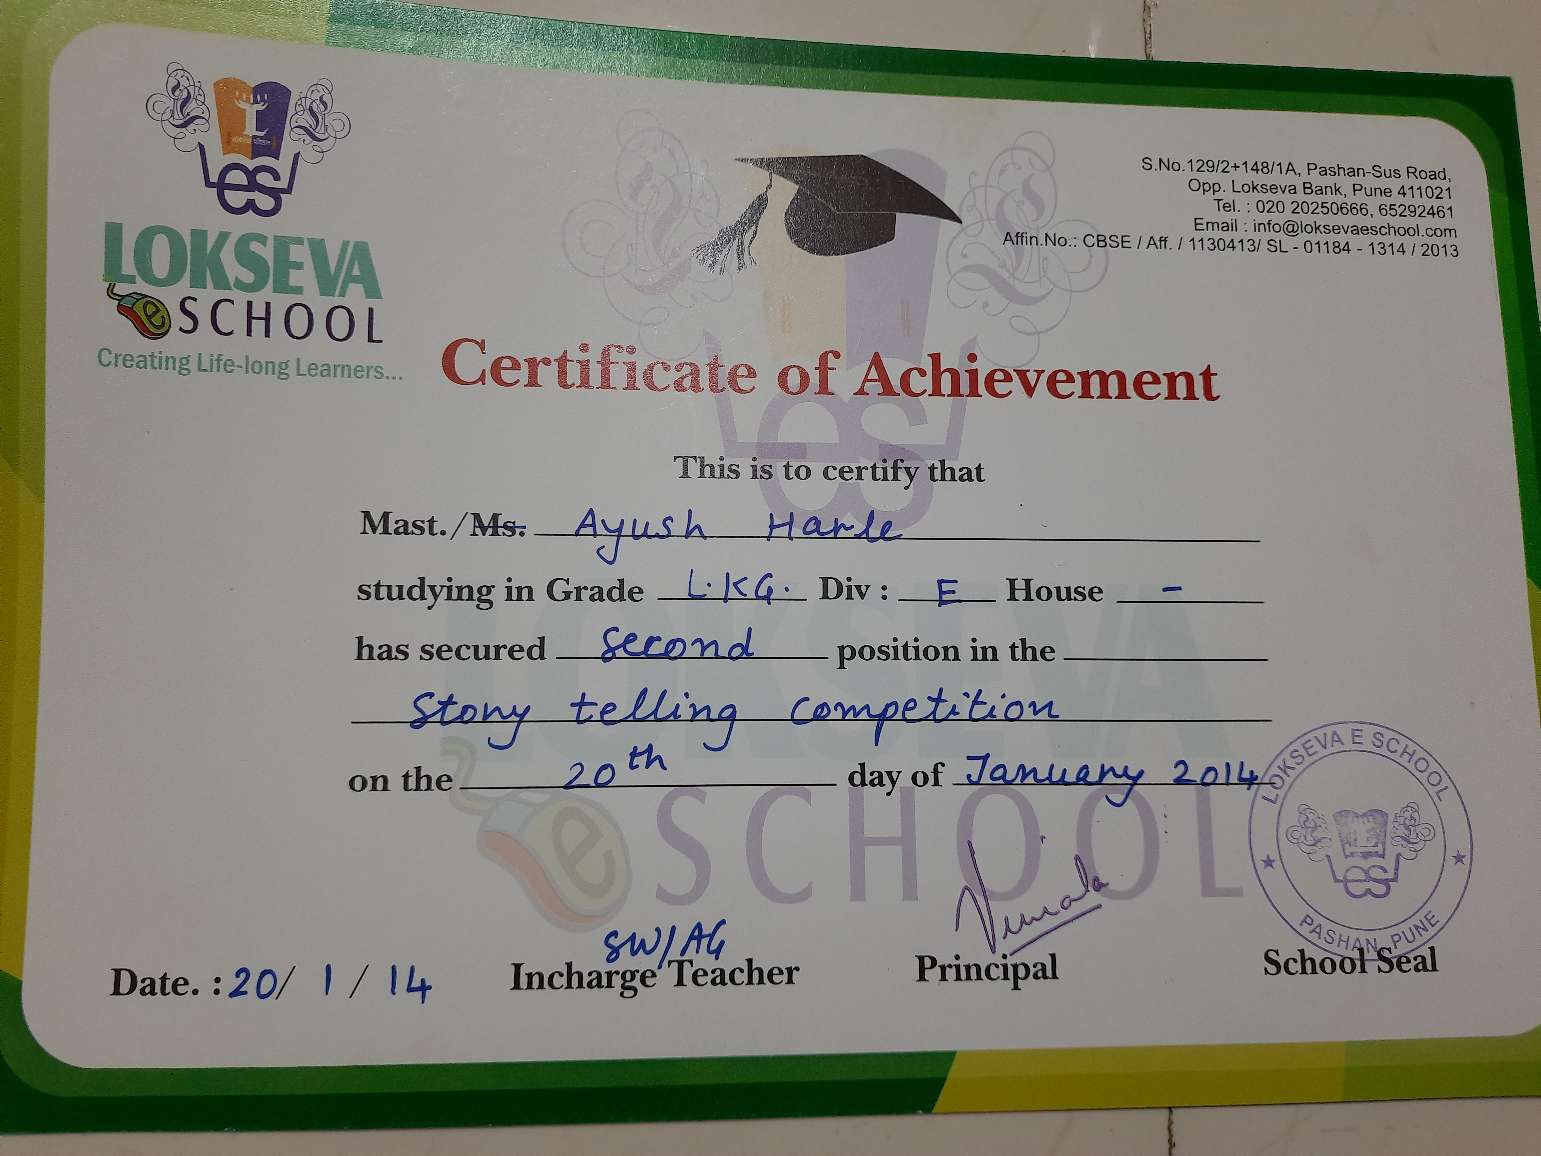 LOKSEVA
e SCHOOL
Creating Life-long Learners...
S.No.129/2+148/1A, Pashan-Sus Road,
Opp. Lokseva Bank, Pune 411021
Tel. : 020 20250666, 65292461
Email : info@loksevaeschool.com
Affin.No.: CBSE / Aff. / 1130413/ SL - 01184 - 1314 / 2013
Certificate of Achievement
This is to certify that
Mast./Ms. Ayush Harle
studying in Grade L.KG. Div : E House -
has secured Second position in the
Story telling competition
on the 20th day of January 2014
LOKSEVA E SCHOOL
PASHAN, PUNE
SW/AG
Vimala
Date. : 20/ 1 / 14 Incharge Teacher Principal School Seal